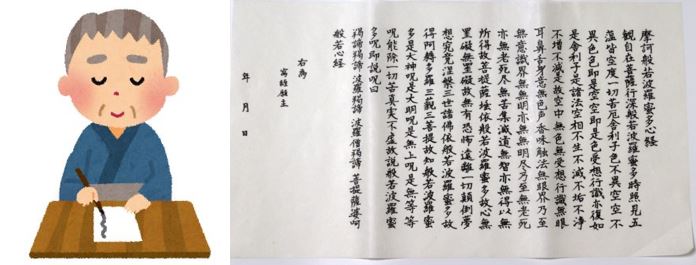 摩訶般若波羅蜜多心経
観自在菩薩行深般若波羅蜜多時照見五
蘊皆空度一切苦厄舎利子色不異空空不
異色色即是空空即是色受想行識亦復如
是舎利子是諸法空相不生不滅不垢不浄
不増不減是故空中無色無受想行識無眼
耳鼻舌身意無色声香味触法無眼界乃至
無意識界無無明亦無無明尽乃至無老死
亦無老死尽無苦集滅道無智亦無得以無
所得故菩提薩埵依般若波羅蜜多故心無
罣礙無罣礙故無有恐怖遠離一切顛倒夢
想究竟涅槃三世諸佛依般若波羅蜜多故
得阿耨多羅三藐三菩提故知般若波羅蜜
多是大神呪是大明呪是無上呪是無等等
呪能除一切苦真実不虚故説般若波羅蜜
多呪即説呪曰
羯諦羯諦 波羅羯諦 波羅僧羯諦 菩提薩婆訶
般若心経
右為
写経願主
年 月 日